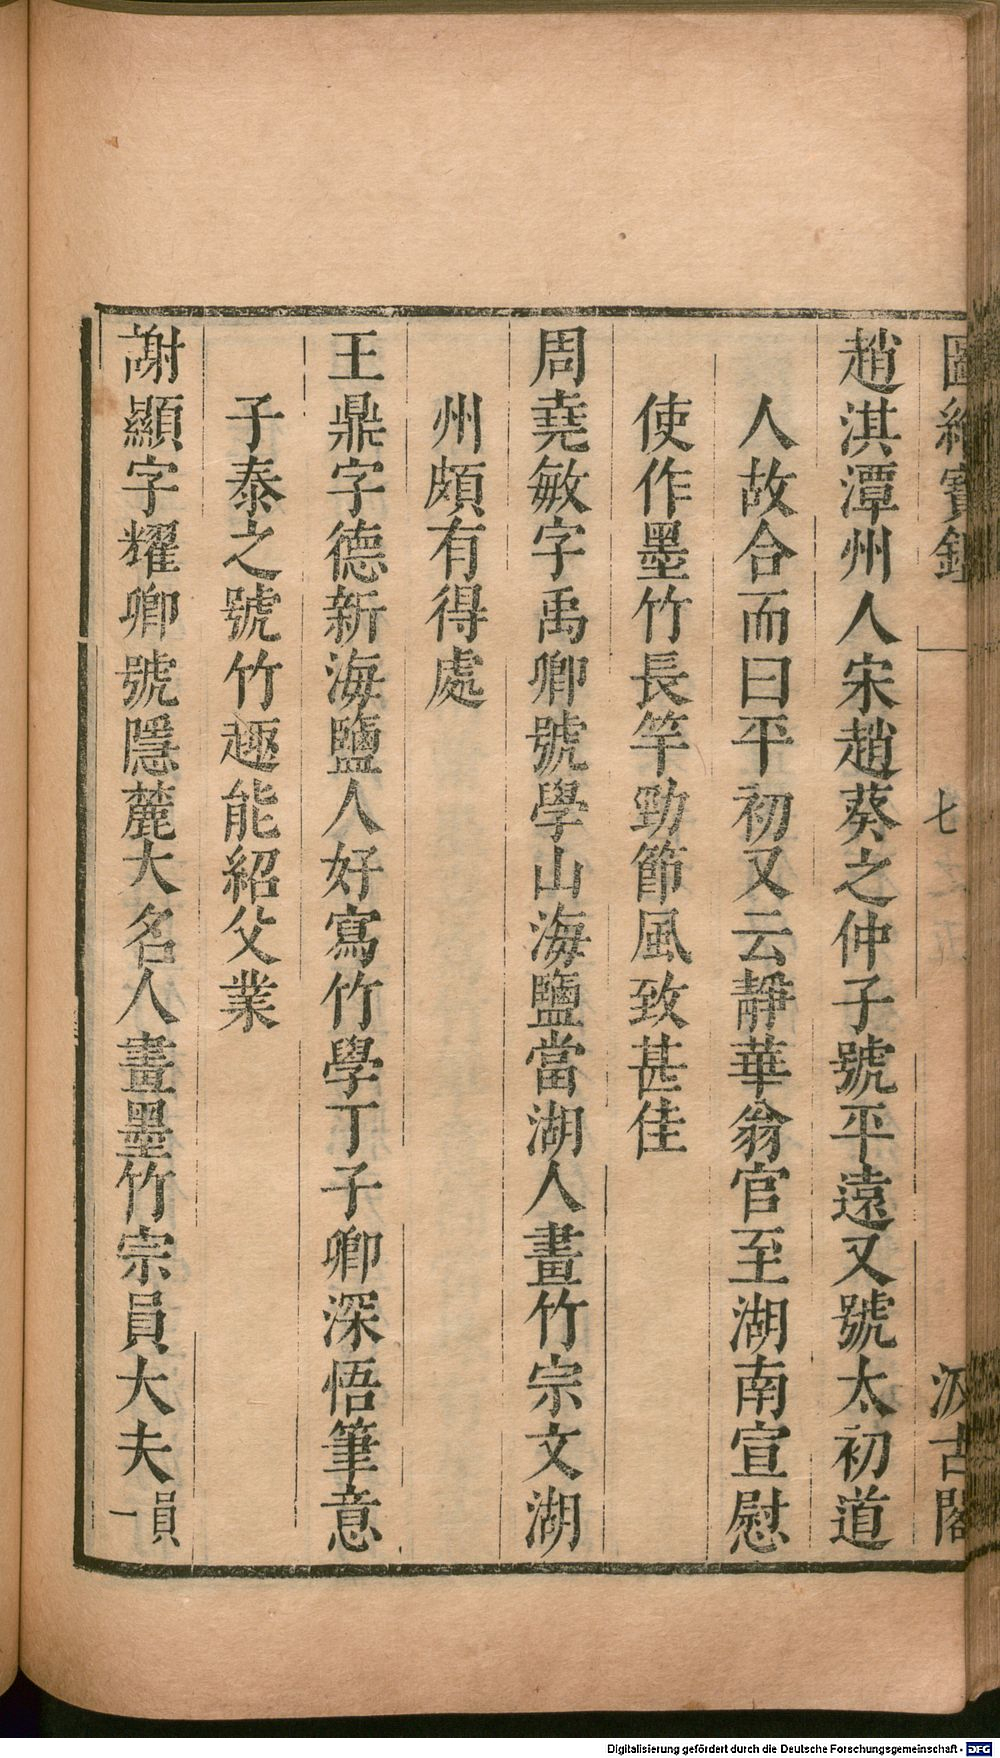 圖繪寶鑑
七
汲古閣
趙淇潭州人宋趙葵之仲子號平遠又號太初道
人故合而曰平初又云靜華翁官至湖南宣慰
使作墨竹長竿勁節風致甚佳
周堯敏字禹卿號學山海鹽當湖人畫竹宗文湖
州頗有得處
王鼎字德新海鹽人好寫竹學丁子卿深悟筆意
子泰之號竹趣能紹父業
謝顯字耀卿號隱麓大名人畫墨竹宗員大夫員一
Digitalisierung gefördert durch die Deutsche Forschungsgemeinschaft - DFG